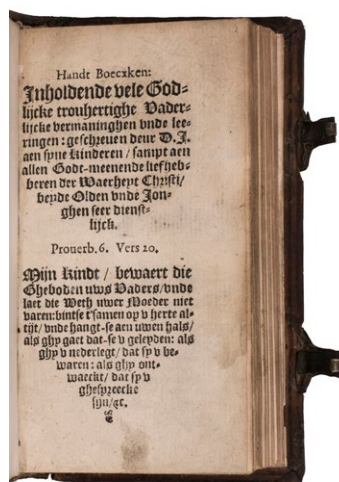 Handt Boecxken:
Inholdende vele God-
lijcke trouhertighe Vader-
lijcke vermaninghen vnde lee-
ringen: geschreuen deur D.J.
aen syne kinderen / sampt aen
allen Godt-meenende liefheb-
beren der Waerheyt Christi/
beyde Olden vnde Jon-
ghen seer dienst-
lijck.
Prouerb.6. Vers 20.
Mijn kindt / bewaert die
Gheboden uws Vaders/vnde
laet die Weth uwer Moeder niet
varen:bintse t'samen op v herte al-
tijt/vnde hangt-se aen uwen hals/
als ghy gaet dat-se v geleyden: als
ghy v nederlegt/dat sy v be-
waren: als ghy ont-
waeckt/dat sy v
ghespreecke
sijn/&c.